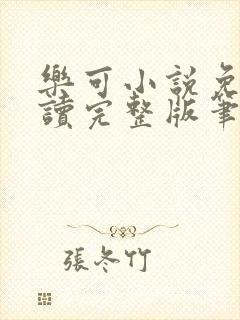 樂可小說免
讀完整版筆
張冬竹